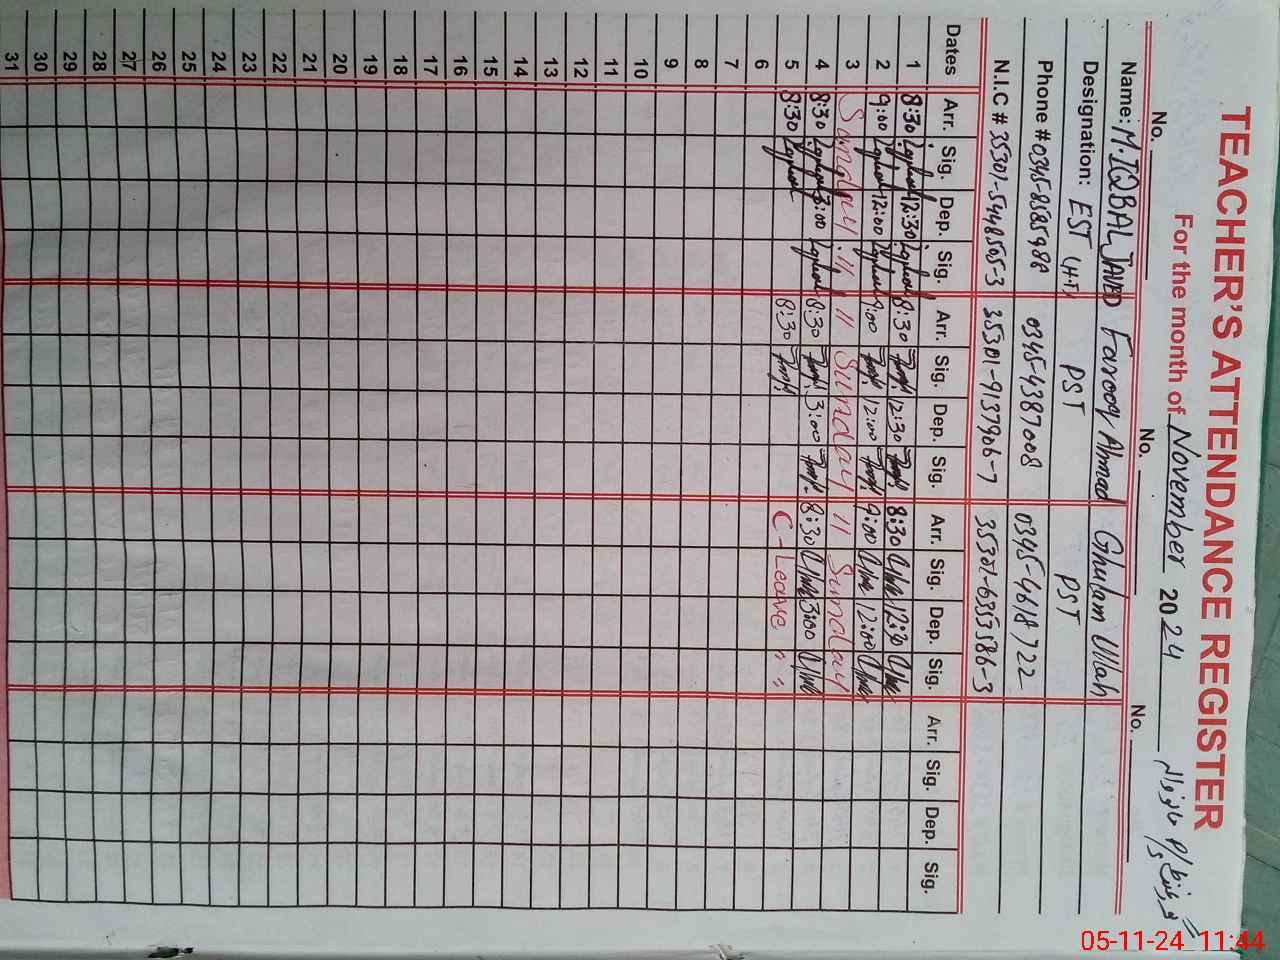 TEACHER'S ATTENDANCE REGISTER
For the month of November 2024
No. No. No.
Name: M. IQBAL JAVED Farooq Ahmad Ghulam Ullah
Designation: EST (H.T) PST PST
Phone # 0345-8585986 0345-4387008 0345-4618722
N.I.C # 35301-5448565-3 35301-9137906-7 35301-6353586-3
Dates Arr. Sig. Dep. Sig. Arr. Sig. Dep. Sig. Arr. Sig. Dep. Sig. Arr. Sig. Dep. Sig.
1 8:30 Iqbal 12:30 Iqbal 8:30 12:30 8:30 12:30
2 9:00 Iqbal 12:00 Iqbal 9:00 12:00 9:00 12:00
3 Sunday :11 11 Sunday 11 Sunday
4 8:30 Iqbal 3:00 Iqbal 8:30 3:00 8:30 3:00
5 8:30 Iqbal 8:30 C-Leave " "
6
7
8
9
10
11
12
13
14
15
16
17
18
19
20
21
22
23
24
25
26
27
28
29
30
31
05-11-24 11:44